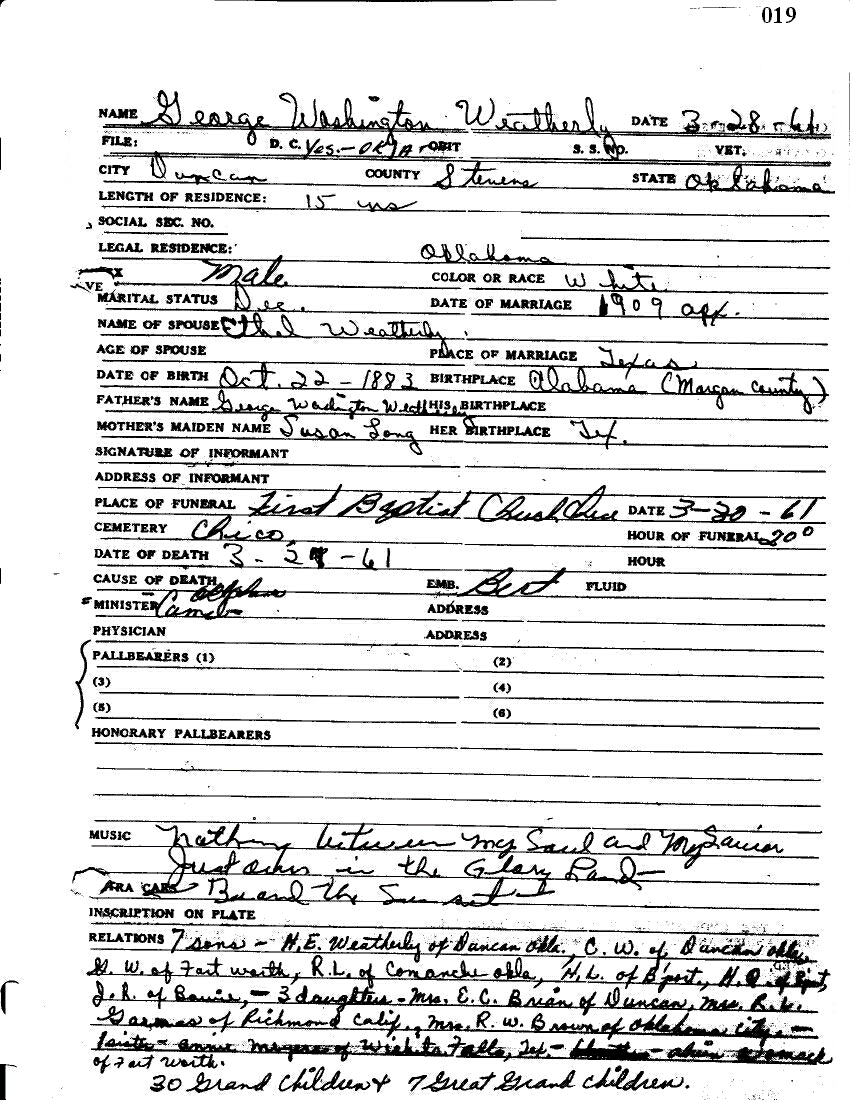 019
NAME George Washington Weatherly DATE 3-28-61
FILE: D. C. Yes.-OKLA OBIT S. S. NO. VET.
CITY Duncan COUNTY Stevens STATE Oklahoma
LENGTH OF RESIDENCE: 15
SOCIAL SEC. NO.
LEGAL RESIDENCE: Oklahoma
X Male COLOR OR RACE White
VE
MARITAL STATUS Dec. DATE OF MARRIAGE 1909 apx.
NAME OF SPOUSE Ethel Weatherly
AGE OF SPOUSE PLACE OF MARRIAGE Texas
DATE OF BIRTH Oct. 22 - 1883 BIRTHPLACE Alabama (Morgan County)
FATHER'S NAME George Washington Weatherly HIS BIRTHPLACE
MOTHER'S MAIDEN NAME Susan Long HER BIRTHPLACE Tex.
SIGNATURE OF INFORMANT
ADDRESS OF INFORMANT
PLACE OF FUNERAL First Baptist Church DATE 3-30-61
CEMETERY Chico HOUR OF FUNERAL 200
DATE OF DEATH 3-28-61 HOUR
CAUSE OF DEATH EMB. Bert FLUID
MINISTER ADDRESS
PHYSICIAN ADDRESS
PALLBEARERS (1) (2)
(3) (4)
(5) (6)
HONORARY PALLBEARERS
MUSIC Nothing between my Soul and My Savior
Just over in the Glory Land-
CARS Beyond the Sunset
INSCRIPTION ON PLATE
RELATIONS 7 sons - H.E. Weatherly of Duncan Okla, C. W. of Duncan Okla,
G. W. of Fort Worth, R.L. of Comanche Okla, H. L. of B'port, H.O. of Bport,
J. R. of Bowie, - 3 daughters - Mrs. E. C. Brian of Duncan, Mrs. R. L.
of Richmond Calif., Mrs. R. W. Brown of Oklahoma City. -
1 sister - Annie of Wichita Falls, Tex. -
of Fort Worth.
30 Grand Children & 7 Great Grand Children.